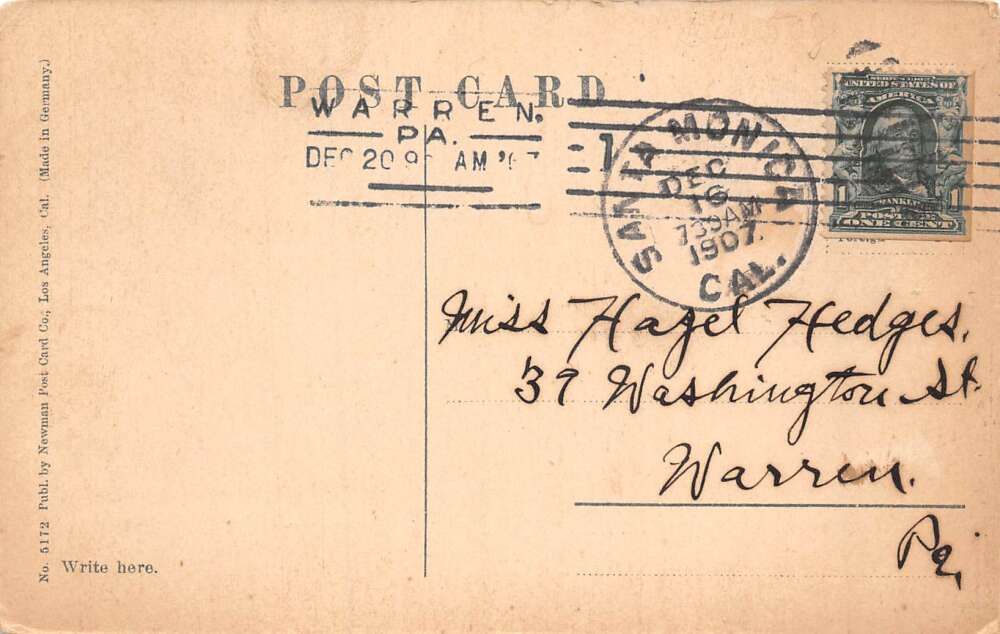 POST CARD
WARREN.
PA.
DEC 20 9 AM '07
1
SANTA MONICA
DEC
16
730AM
1907.
CAL.
SERIES 1902
UNITED STATES OF
AMERICA
FRANKLIN
1 1
POSTAGE
ONE CENT
Foreign
Miss Hazel Hedges,
39 Washington St.
Warren.
Pa,
Write here.
No. 5172 Publ. by Newman Post Card Co., Los Angeles, Cal. (Made in Germany.)